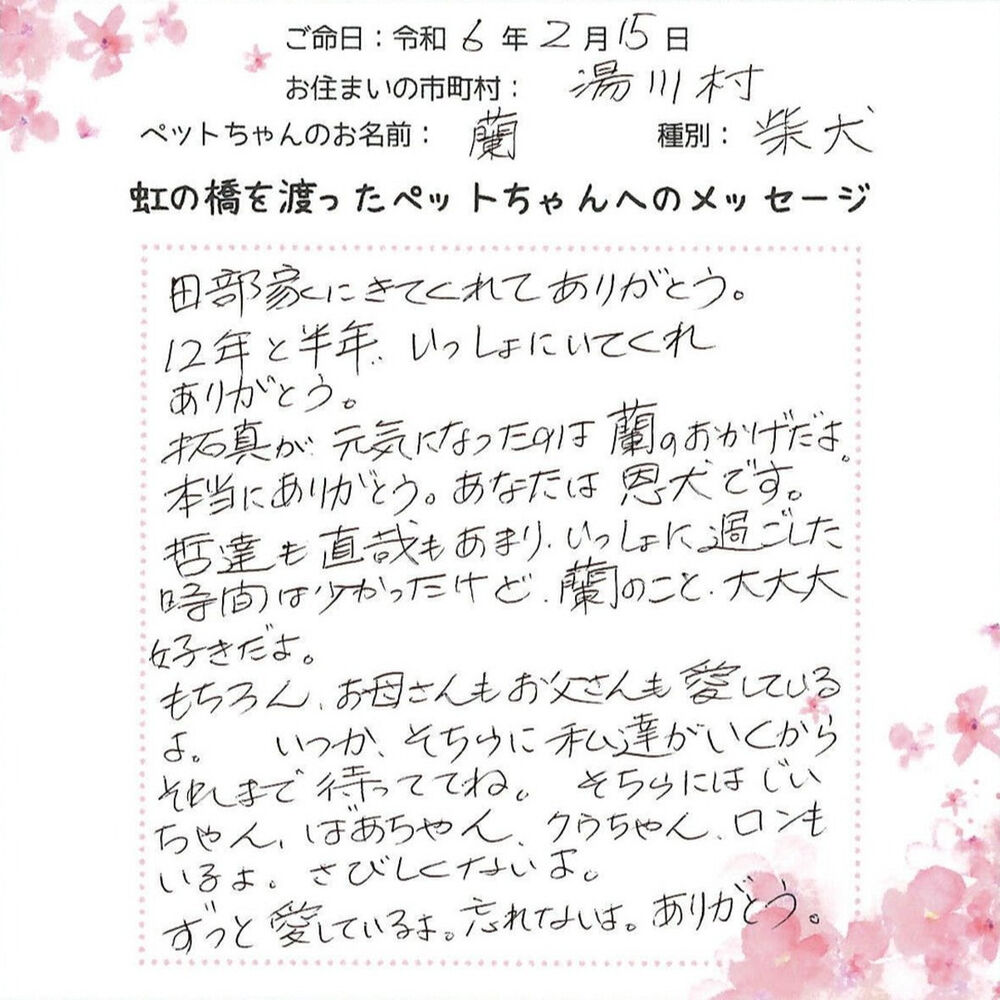 ご命日：令和 6 年 2 月 15 日
お住まいの市町村： 湯川村
ペットちゃんのお名前： 蘭 種別： 柴犬
虹の橋を渡ったペットちゃんへのメッセージ
田部家にきてくれてありがとう。
12年と半年、いっしょにいてくれ
ありがとう。
拓真が、元気になったのは蘭のおかげだよ。
本当にありがとう。あなたは恩犬です。
哲達も直哉もあまり、いっしょに過ごした
時間は少かったけど、蘭のこと、大大大
好きだよ。
もちろん、お母さんもお父さんも愛している
よ。 いつか、そちらに私達がいくから
それまで待っててね。 そちらにはじい
ちゃん、ばあちゃん、クウちゃん、ロンも
いるよ。さびしくないよ。
ずっと愛しているよ。忘れないよ。ありがとう。